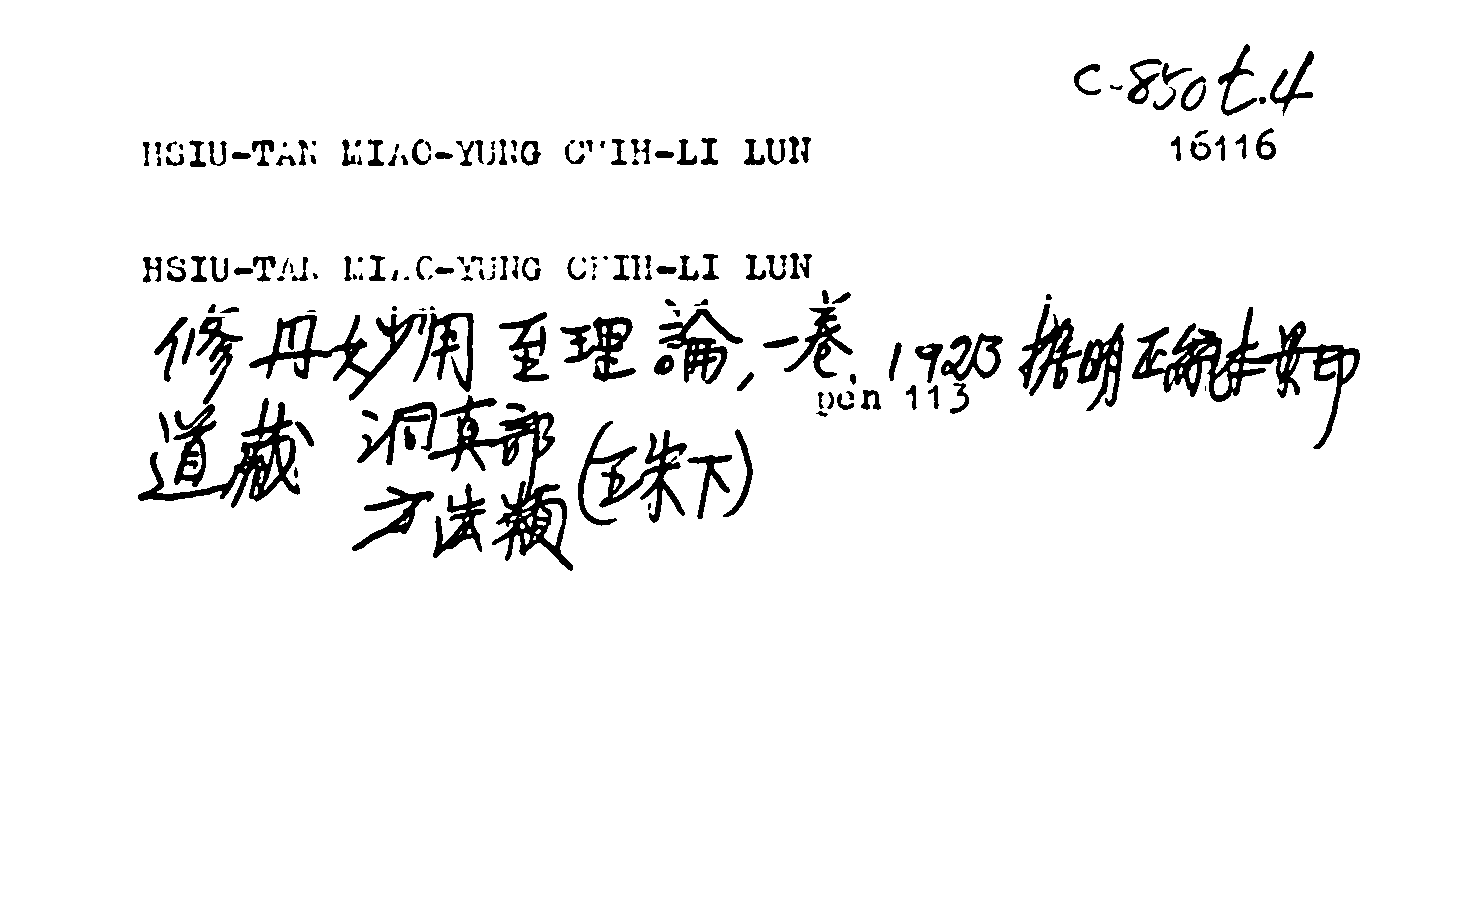 C-850 t.4
16116
HSIU-TAN MIAO-YUNG CHIH-LI LUN
HSIU-TAN MIAO-YUNG CHIH-LI LUN
修丹妙用至理論, 一卷. 1923 據明正統本景印
pen 113
道藏 洞真部
方法類 (珠下)